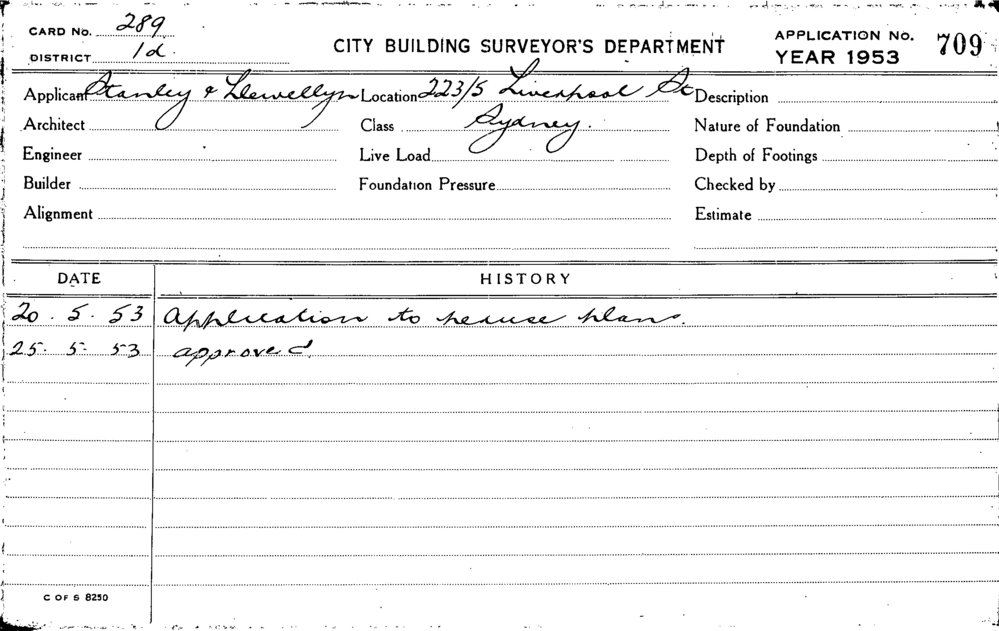 CARD No. 289
DISTRICT 1d.
CITY BUILDING SURVEYOR'S DEPARTMENT
APPLICATION No. 709
YEAR 1953
Applicant Stanley & Llewellyn Location 223/5 Liverpool St Description
Architect Class Sydney. Nature of Foundation
Engineer Live Load Depth of Footings
Builder Foundation Pressure Checked by
Alignment Estimate
DATE HISTORY
20. 5. 53 Application to peruse plans.
25. 5. 53 approved.
C OF S 8250